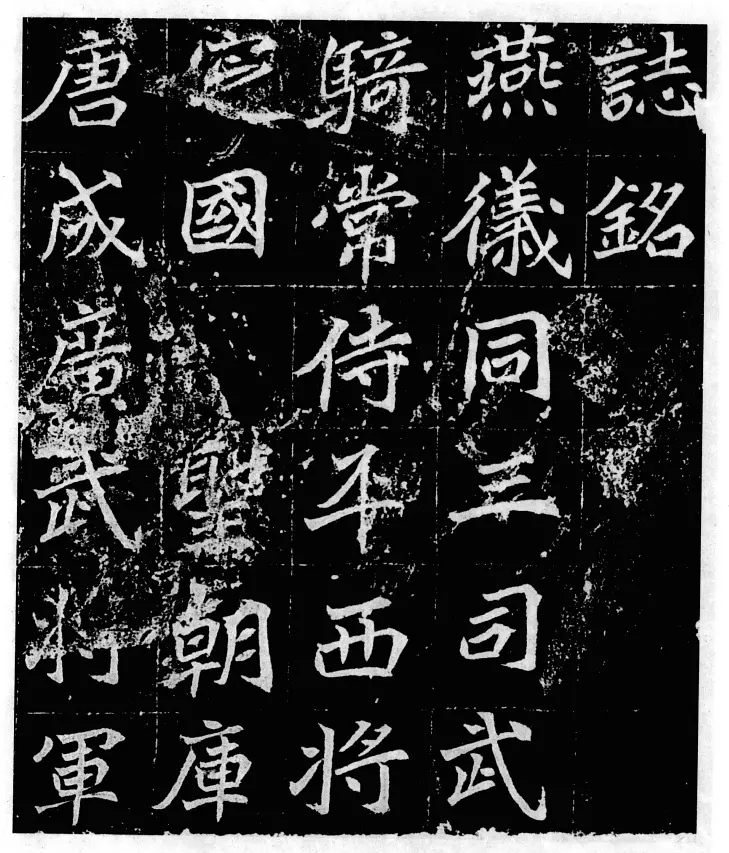 誌銘
燕儀同三司武
騎常侍平西将
定國 聖朝庫
唐成廣武将軍